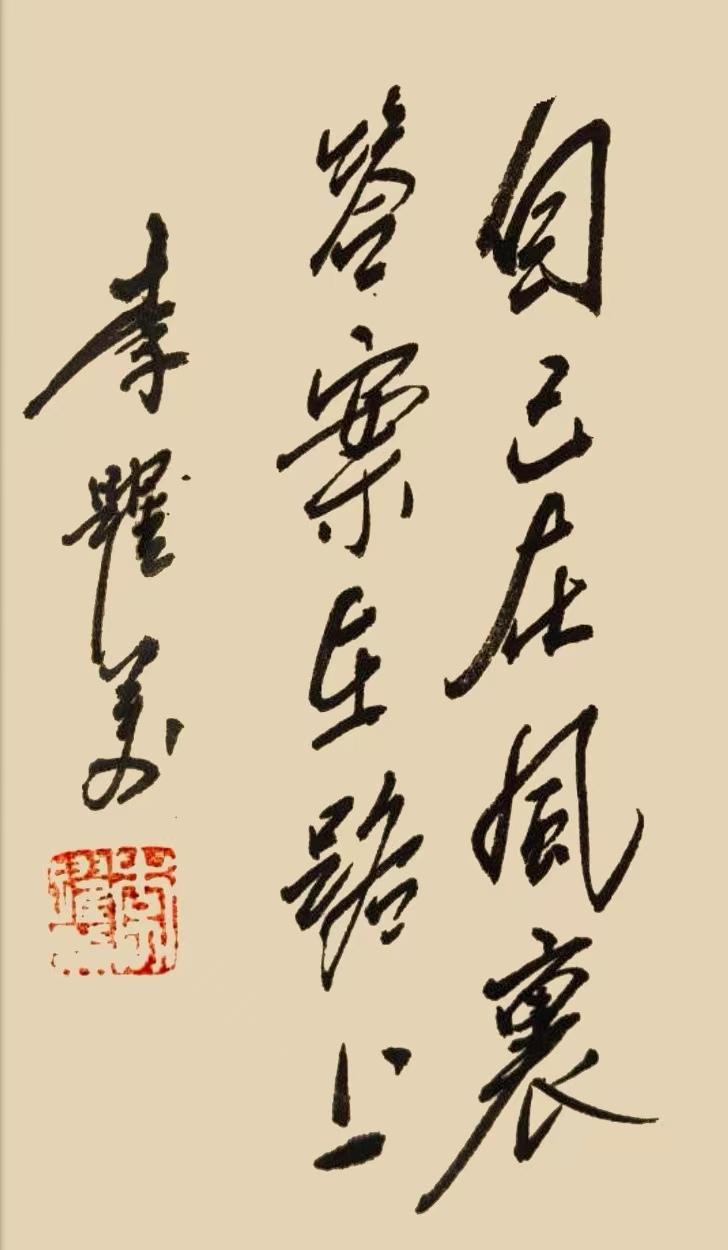 自己在風裏
答案在路上
李